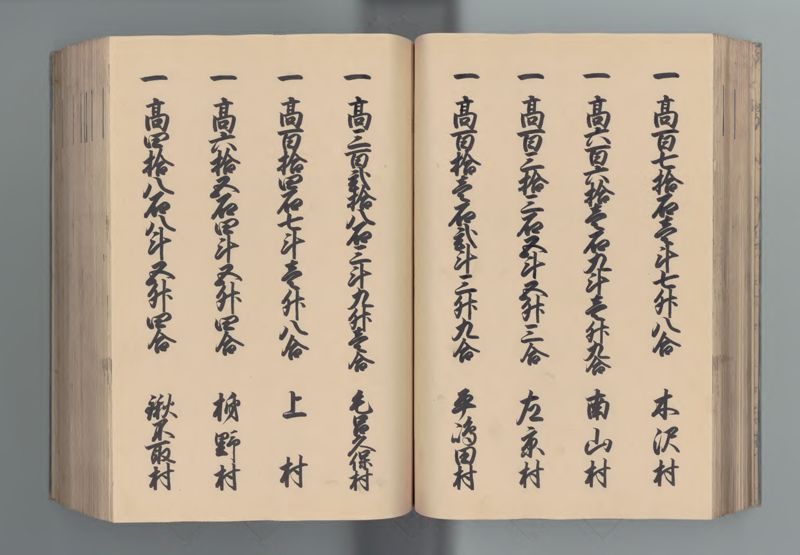 一 高百七拾石壱斗七升八合 木沢村
一 高六百六拾壱石九斗壱升九合 南山村
一 高百三拾三石五斗五升三合 左京村
一 高百拾壱石弐斗三升九合 平嶋田村
一 高三百弐拾八石三斗九升壱合 毛呂久保村
一 高百拾四石七斗壱升八合 上村
一 高六拾五石四斗五升四合 野村
一 高四拾八石八斗五升四合 鍬不取村